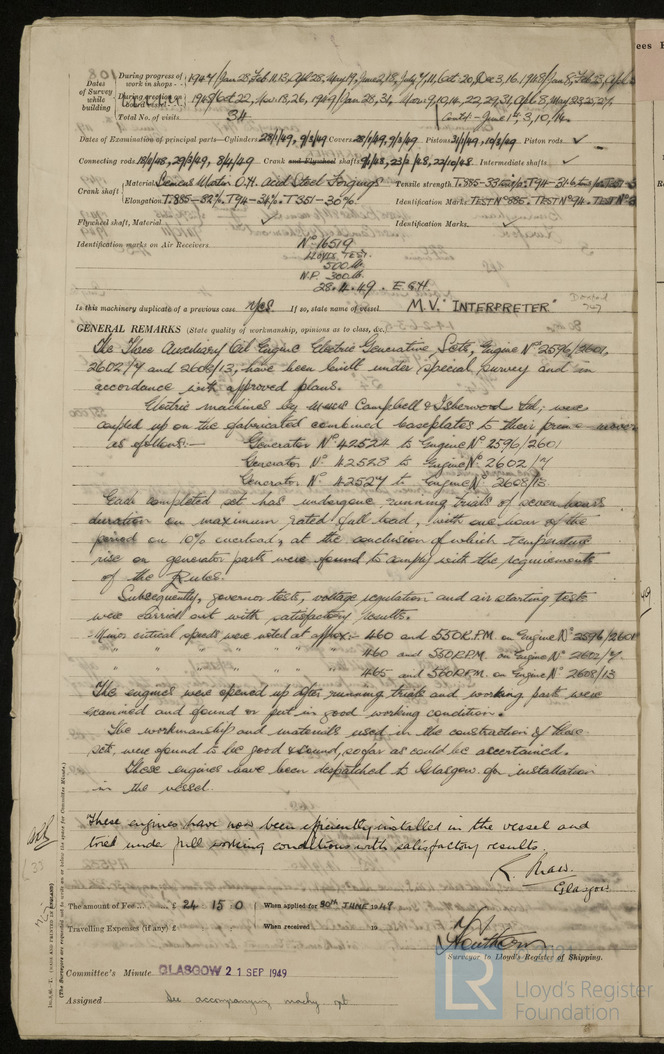 Dates of Survey while building
During progress of work in shops - - 1947/Jan 28, Feb 11, 13, Apl 28, May 19, June 2, 18, July 9, 11, Oct 20, Dec 3, 16. 1948/Jan 8, Feb 23, Apl
1948/Oct 22, Nov 13, 26, 1949/Jan 28, 31, Mar 9, 10, 14, 22, 29, 31, Apl 8, May 23, 25, 27,
Total No. of visits 34 Contd - June 1st, 3, 10, 14.
Dates of Examination of principal parts—Cylinders 28/1/49, 9/3/49 Covers 28/1/49, 9/3/49 Pistons 31/1/49, 10/3/49 Piston rods ✓
Connecting rods 18/2/48, 29/3/49, 8/4/49 Crank and Flywheel shafts 9/2/48, 23/2/48, 22/10/48 Intermediate shafts ✓
Crank shaft Material Siemens Martin O.H. Acid Steel Forgings Tensile strength T.885-33 T94-31.6
Elongation T.885-32% T94-34% T351-30% Identification Marks TEST Nº 885. TEST Nº 94. TEST Nº
Flywheel shaft, Material ✓ Identification Marks ✓
Identification marks on Air Receivers.
Nº 16519
LLOYDS TEST.
500 lb.
W.P. 300 lb.
28.4.49. E G H
Is this machinery duplicate of a previous case Yes If so, state name of vessel M.V. "INTERPRETER"
GENERAL REMARKS (State quality of workmanship, opinions as to class, &c.)
The Three Auxiliary Oil Engine Electric Generating Sets, Engine Nº 2596/2601,
2602/7 and 2608/13, have been built under special survey and in
accordance with approved plans.
Electric machines by Messrs Campbell & Isherwood Ltd, were
coupled up on the fabricated combined baseplates to their prime movers
as follows:— Generator Nº 42524 to Engine Nº 2596/2601
Generator Nº 42528 to Engine Nº 2602/7
Generator Nº 42527 to Engine Nº 2608/13
Each completed set has undergone running trials of seven hours
duration on maximum rated full load, with one hour of the
period on 10% overload, at the conclusion of which temperature
rise on generator parts were found to comply with the requirements
of the Rules.
Subsequently, governor tests, voltage regulation and air starting tests
were carried out with satisfactory results.
Minor critical speeds were noted at approx:- 460 and 550 R.P.M. on Engine Nº 2596/2601
" " " " " " " 460 and 550 R.P.M. on Engine Nº 2602/7.
" " " " " " " 465 and 560 R.P.M. on Engine Nº 2608/13
The engines were opened up after running trials and working parts were
examined and found or put in good working condition.
The workmanship and materials used in the construction of these
sets, were found to be good & sound, so far as could be ascertained.
These engines have been despatched to Glasgow for installation
in the vessel.
These engines have now been efficiently installed in the vessel and
tried under full working conditions with satisfactory results.
R. Shaw.
Glasgow
The amount of Fee .. .. £ 24 15 : 0 When applied for 30TH JUNE 1949
Travelling Expenses (if any) £ : : When received 19
Surveyor to Lloyd's Register of Shipping.
Committee's Minute GLASGOW 21 SEP 1949
Assigned See accompanying machy. rpt.
Lloyd's Register
Foundation
LR
(The Surveyors are requested not to write on or below the space for Committee Minute.)
(MADE AND PRINTED IN ENGLAND)